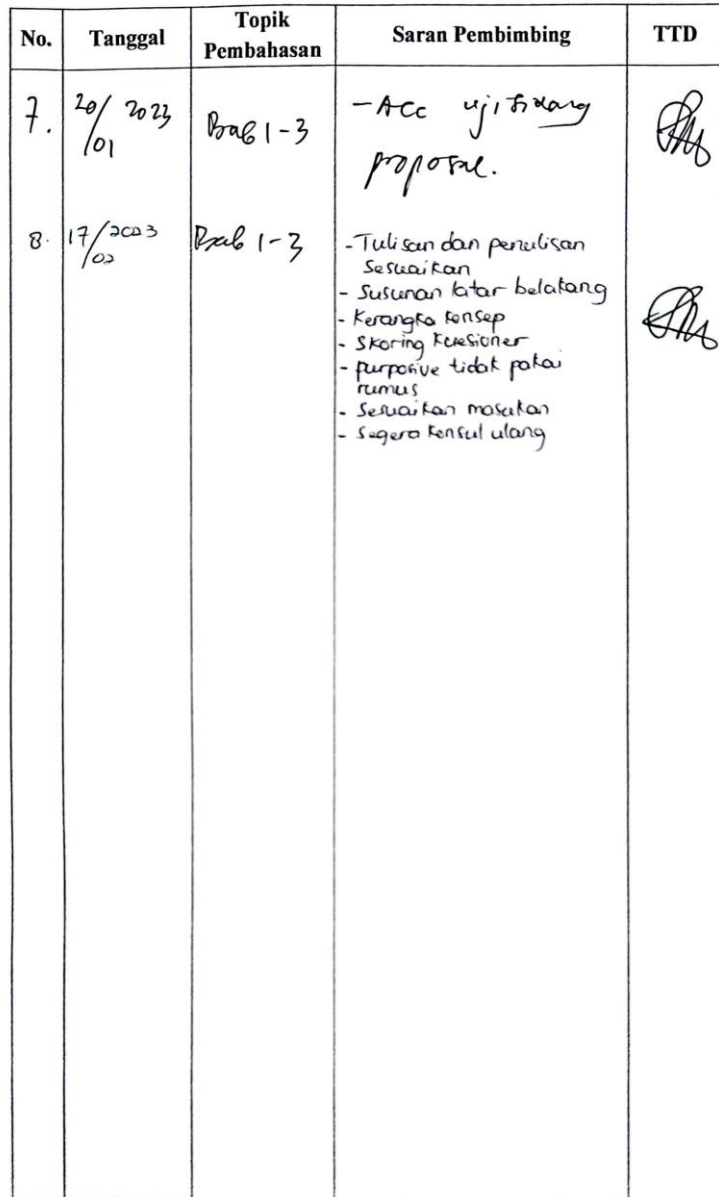 No. Tanggal Topik Pembahasan Saran Pembimbing TTD
7. 20/01 2023 Bab 1-3 - Acc uji sidang
proposal.
8. 17/02 2023 Bab 1-3 - Tulisan dan penulisan
Sesuaikan
- Susunan latar belakang
- Kerangka konsep
- Skoring kuesioner
- purposive tidak pakai
rumus
- Sesuaikan masukan
- Segera konsul ulang